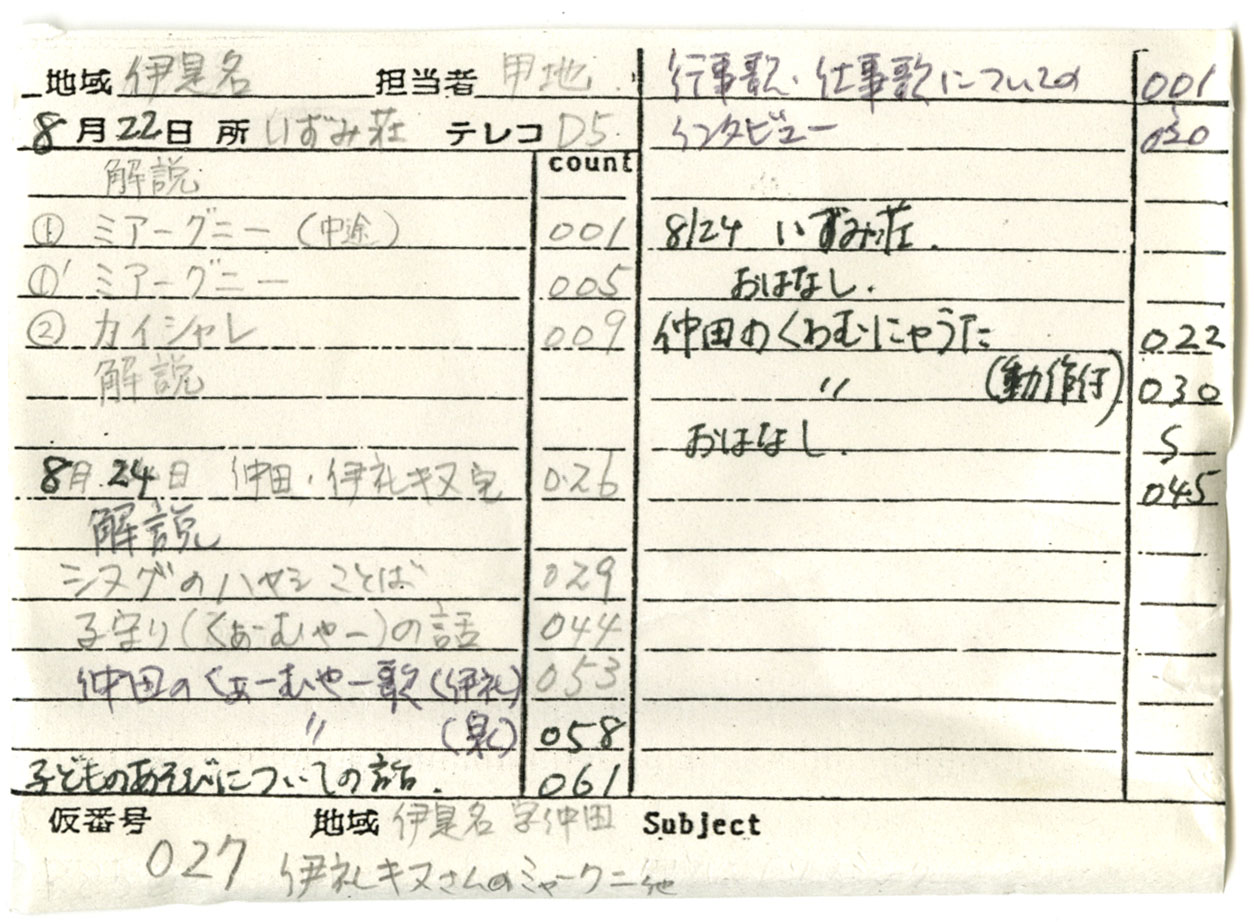 地域 伊是名 担当者 甲地
8月22日 所 いずみ荘 テレコ D5
count
解説
① ミアーグニー (中途) 001
①' ミアーグニー 005
② カイシャレ 009
解説
8月24日 仲田・伊礼キヌ宅 026
解説
シヌグのハヤシことば 029
子守り(くぁーむやー)の話 044
仲田のくぁーむやー歌 (伊礼) 053
〃 (泉) 058
子どものあそびについての話. 061
行事歌・仕事歌についての 001
インタビュー 020
8/24 いずみ荘.
おはなし.
仲田のくわむにゃうた 022
〃 (動作付) 030
おはなし. S
045
仮番号 地域 伊是名 字仲田 Subject
027 伊礼キヌさんのミャークニー他